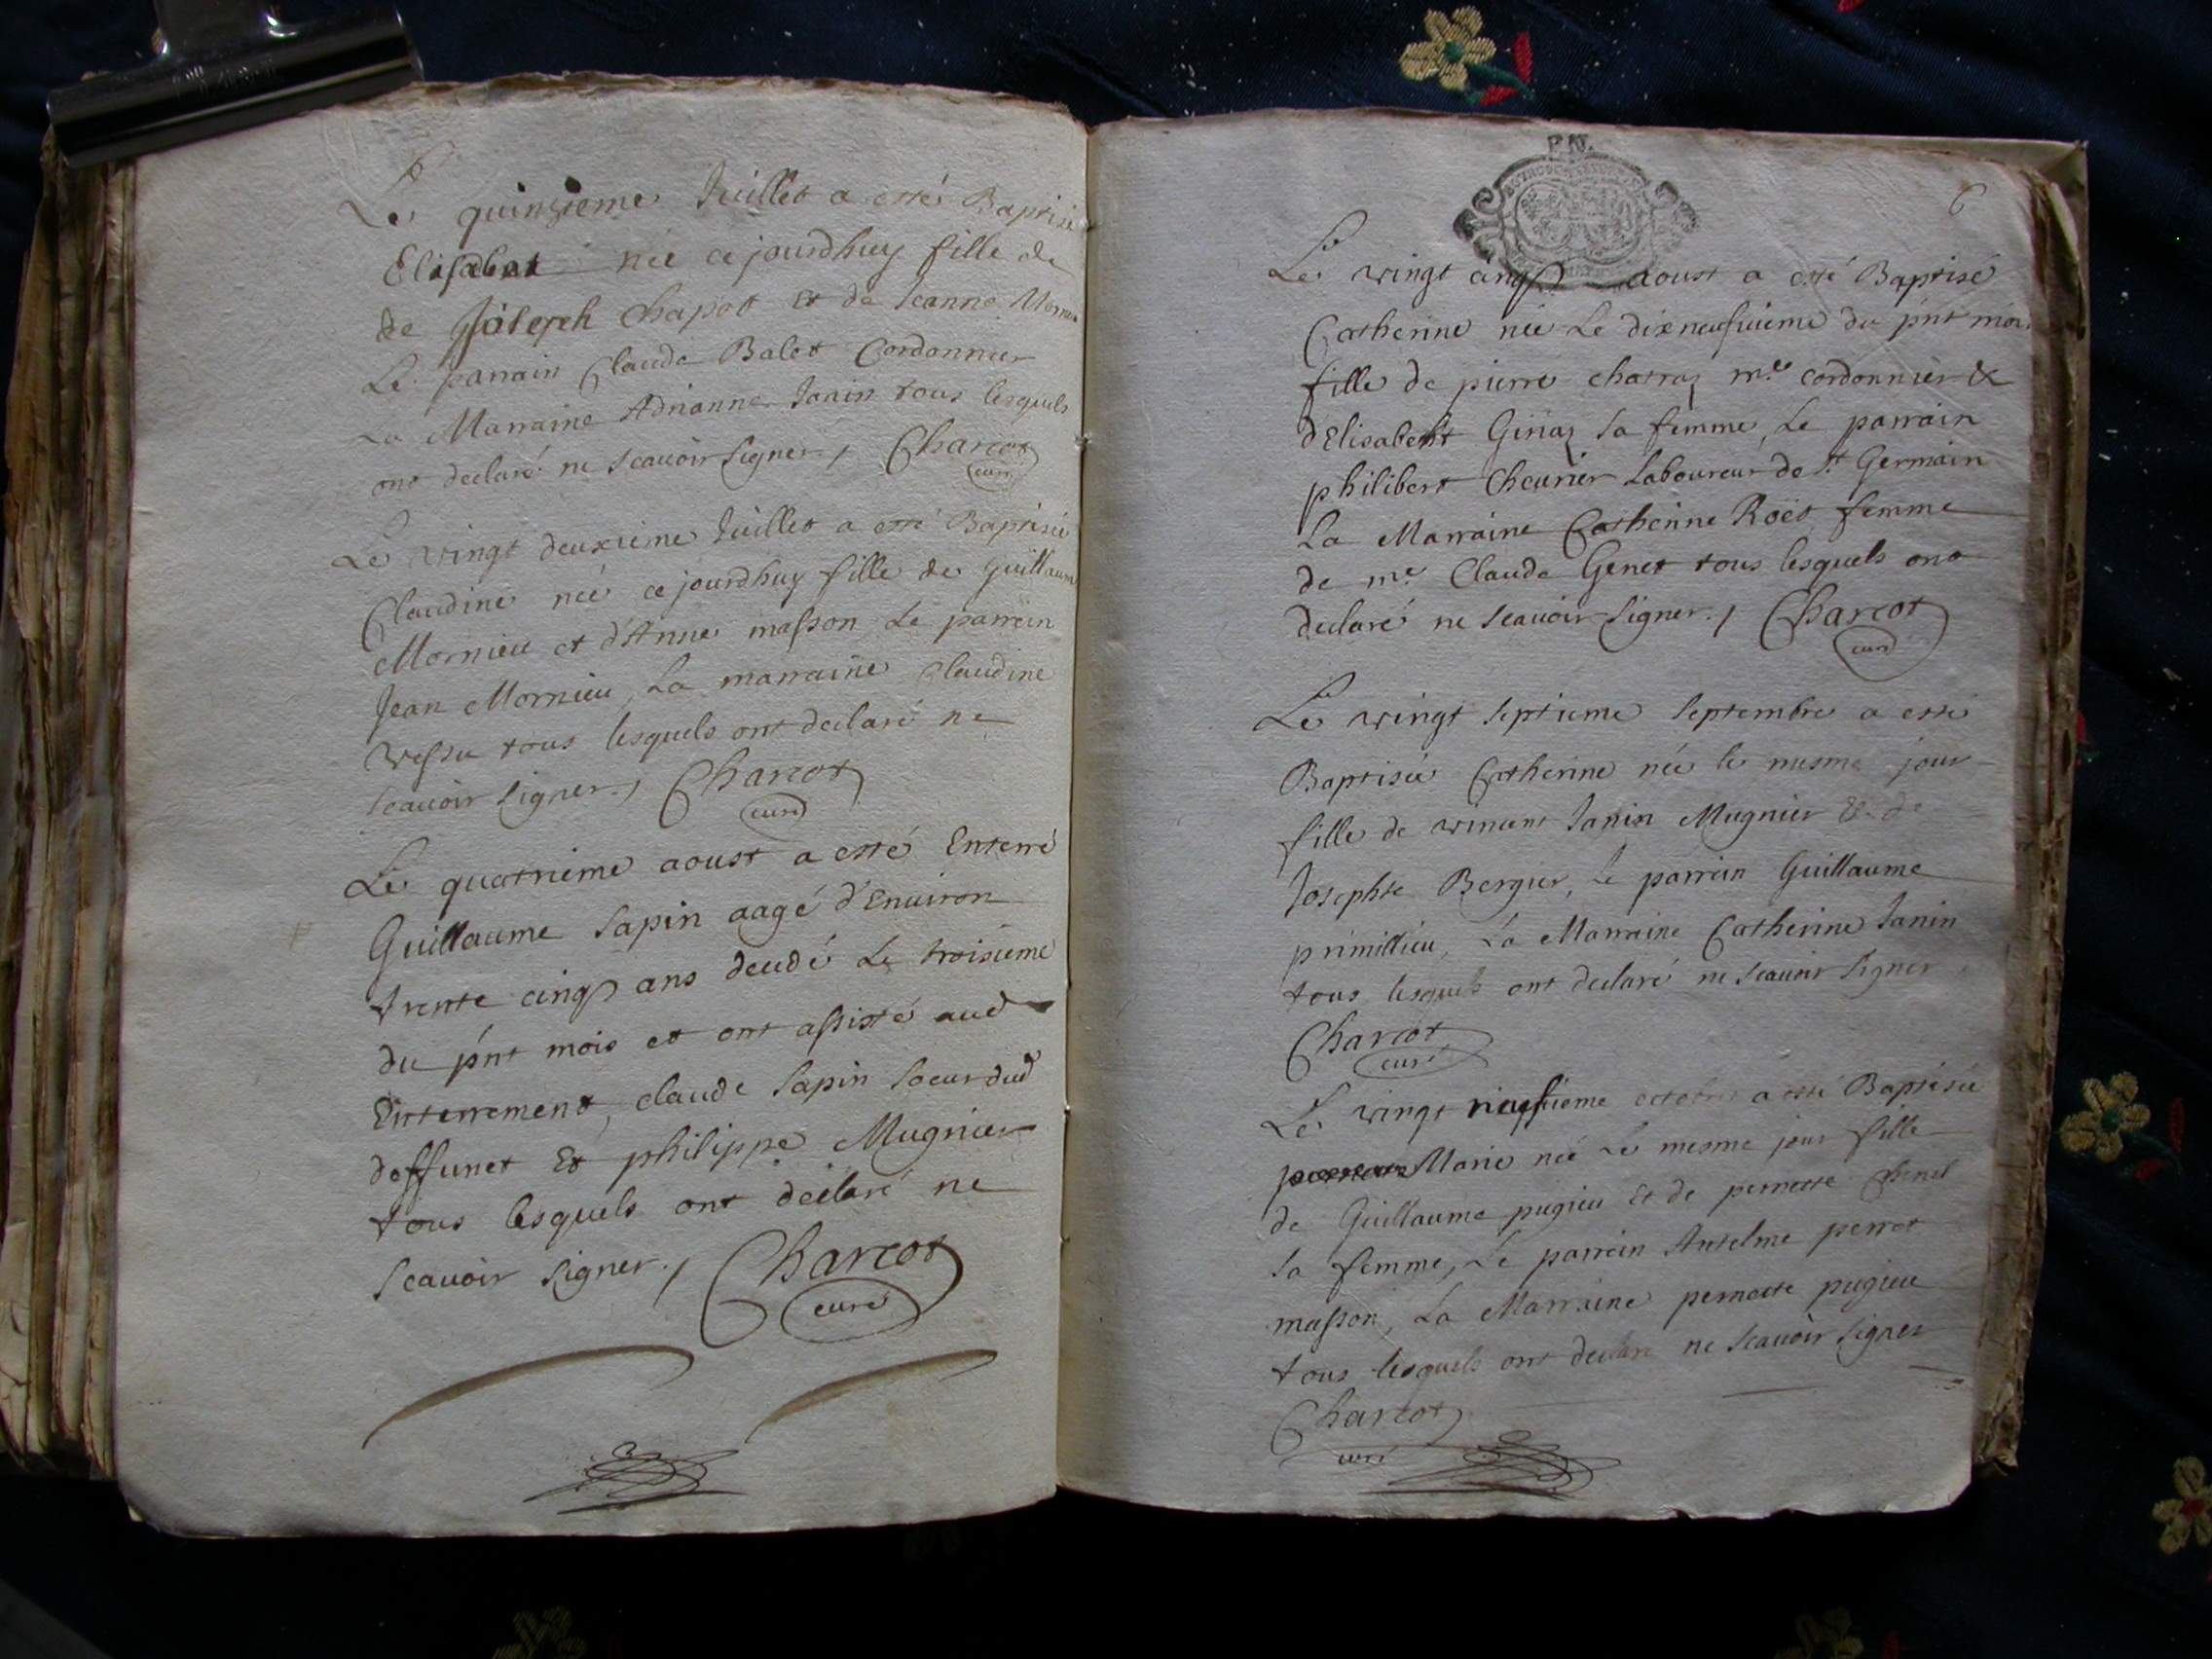 Le quinzieme Juillet a esté Baptisé
Elisabet née ce jourdhuy fille de
de Joseph Chapot et de Jeanne
Le parrain Claude Balet Cordonnier
La Marraine Adrianne Janin tous lesquels
ont declaré ne scauoir signer./ Charcot
curé
Le vingt deuxieme Juillet a esté Baptisée
Claudine née ce jourdhuy fille de Guillaume
Mornieu et d'Anne masson Le parrein
Jean Mornieu, La marraine Claudine
vessu tous lesquels ont declaré ne
scauoir signer./ Charcot
curé
Le quatrieme aoust a esté Enterré
Guillaume Sapin aagé d'Enuiron
trente cinq ans decedé Le troisieme
du pnt mois et ont assisté aud
Enterrement, claude Sapin soeur dud
deffunct Et philippe Mugnier
tous lesquels ont declaré ne
scauoir signer./ Charcot
curé
P.N.
6
Le vingt cinq aoust a esté Baptisé
Catherine née Le dixneufuieme du pnt mois
fille de pierre charraz me cordonnier &
d'Elisabeht Ginaz sa femme, Le parrain
philibert Cheurier Laboureur de St Germain
La Marraine Catherine Roët femme
de me Claude Genet tous lesquels ont
declaré ne scauoir signer./ Charcot
curé
Le vingt septieme septembre a esté
Baptisée Catherine née le mesme jour
fille de vincent Janin Mugnier & de
Josephte Bergier, Le parrein Guillaume
primillieu, La Marraine Catherine Janin
tous lesquels ont declaré ne scauoir signer
Charcot
curé
Le vingt neufieme octobre a esté Baptisée
Marie née Le mesme jour fille
de Guillaume pugieu Et de pernette
sa femme, Le parrein Antelme perret
masson, La Marraine pernette pugieu
tous lesquels ont declaré ne scauoir signer
Charcot
curé